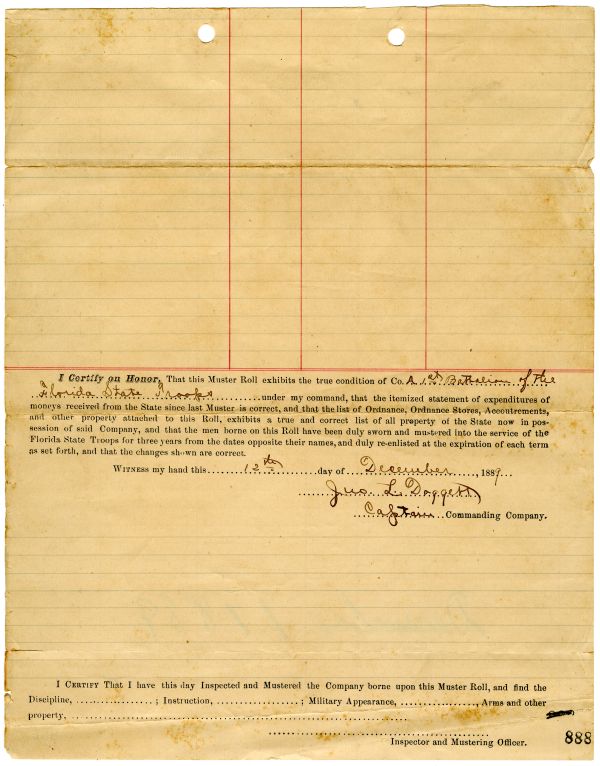 I Certify on Honor, That this Muster Roll exhibits the true condition of Co. A 1st Battalion of the
Florida State Troops under my command, that the itemized statement of expenditures of
moneys received from the State since last Muster is correct, and that the list of Ordnance, Ordnance Stores, Accoutrements,
and other property attached to this Roll, exhibits a true and correct list of all property of the State now in pos-
session of said Company, and that the men borne on this Roll have been duly sworn and mustered into the service of the
Florida State Troops for three years from the dates opposite their names, and duly re-enlisted at the expiration of each term
as set forth, and that the changes shown are correct.
WITNESS my hand this 12th day of December, 1889
Jno. L. Doggett
Captain Commanding Company.
I CERTIFY That I have this day Inspected and Mustered the Company borne upon this Muster Roll, and find the
Discipline, ; Instruction, ; Military Appearance, , Arms and other
property,
Inspector and Mustering Officer.
888